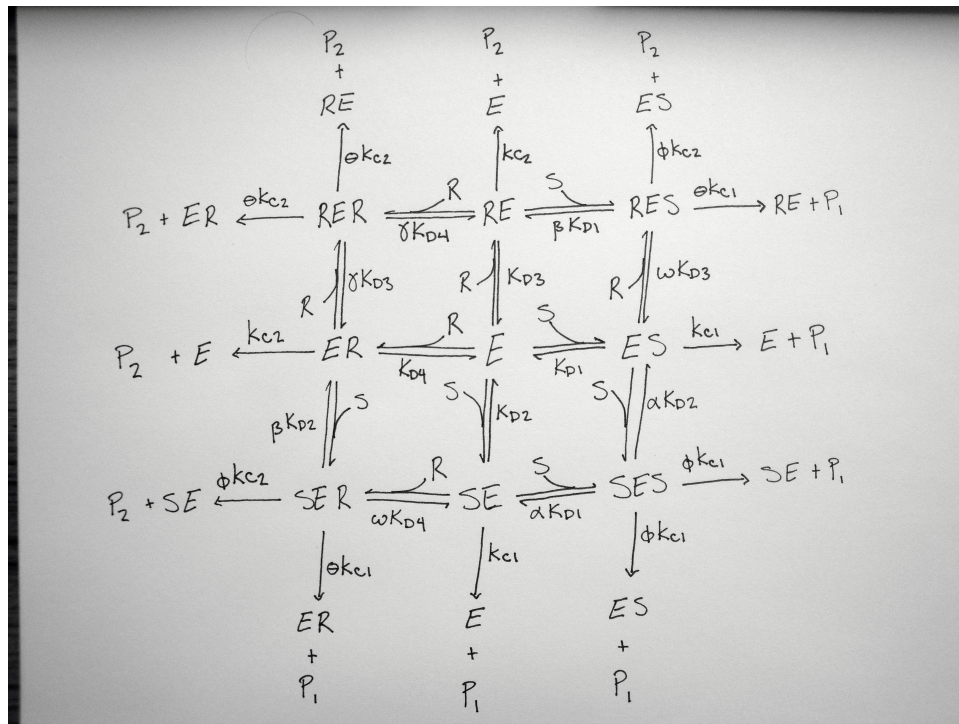 P₂ P₂ P₂
+ + +
RE E ES
θkc₂ kc₂ ϕkc₂
P₂ + ER θkc₂ RER R γKD4 RE S βKD1 RES θkc₁ RE + P₁
R γKD3 R KD3 R ωKD3
P₂ + E kc₂ ER R KD4 E S KD1 ES kc₁ E + P₁
βKD2 S S KD2 S αKD2
P₂ + SE ϕkc₂ SER R ωKD4 SE S αKD1 SES ϕkc₁ SE + P₁
θkc₁ kc₁ ϕkc₁
ER E ES
+ + +
P₁ P₁ P₁